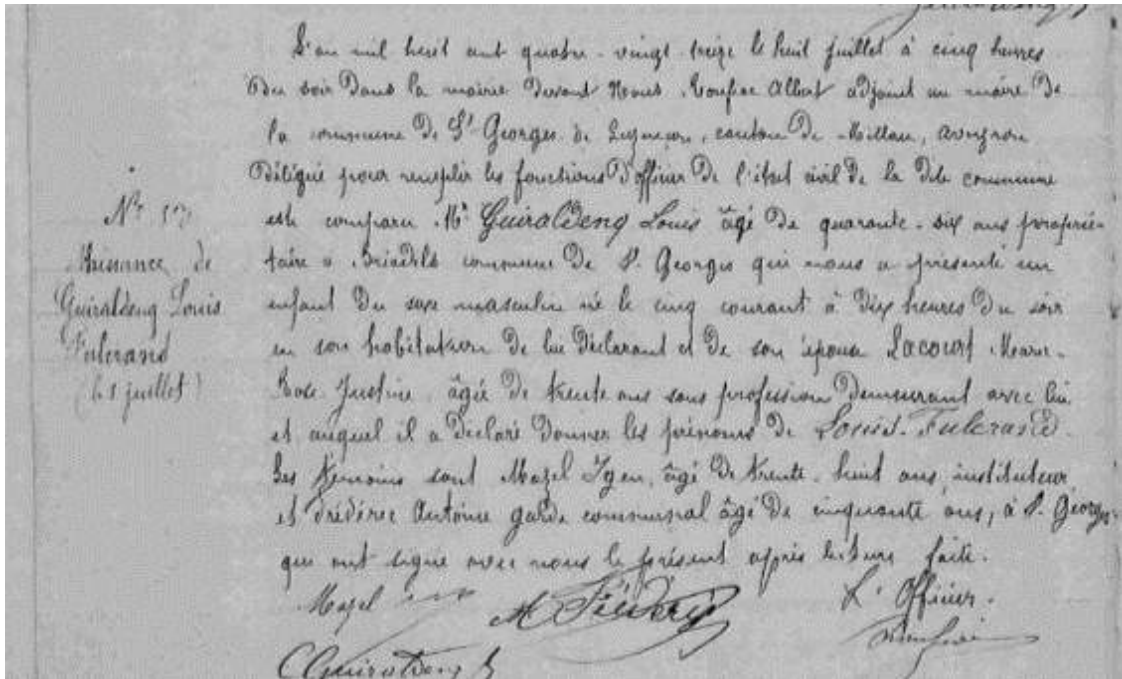 L'an mil huit cent quatre-vingt treize le huit juillet à cinq heures
du soir dans la mairie devant Nous Albert adjoint au maire de
la commune de St Georges de Luzençon, canton de Millau, aveyron
délégué pour remplir les fonctions d'officier de l'état civil de la dite commune
est comparu Mr Guiraldenq Louis âgé de quarante-six ans proprié-
taire à Briadels commune de St Georges qui nous a présenté un
enfant du sexe masculin né le cinq courant à dix heures du soir
en son habitation de lui déclarant et de son épouse Lacourt Marie-
Rose Justine, âgée de trente ans sans profession demeurant avec lui
et auquel il a déclaré donner les prénoms de Louis-Fulcrand.
Les témoins sont Mazel âgé de trente-huit ans, instituteur
et Antoine garde communal âgé de cinquante ans, à St Georges
qui ont signé avec nous le présent après lecture faite.
Mazel
L'Officier.
Guiraldenq
No
Naissance de
Guiraldenq Louis
Fulcrand
(le 5 juillet)